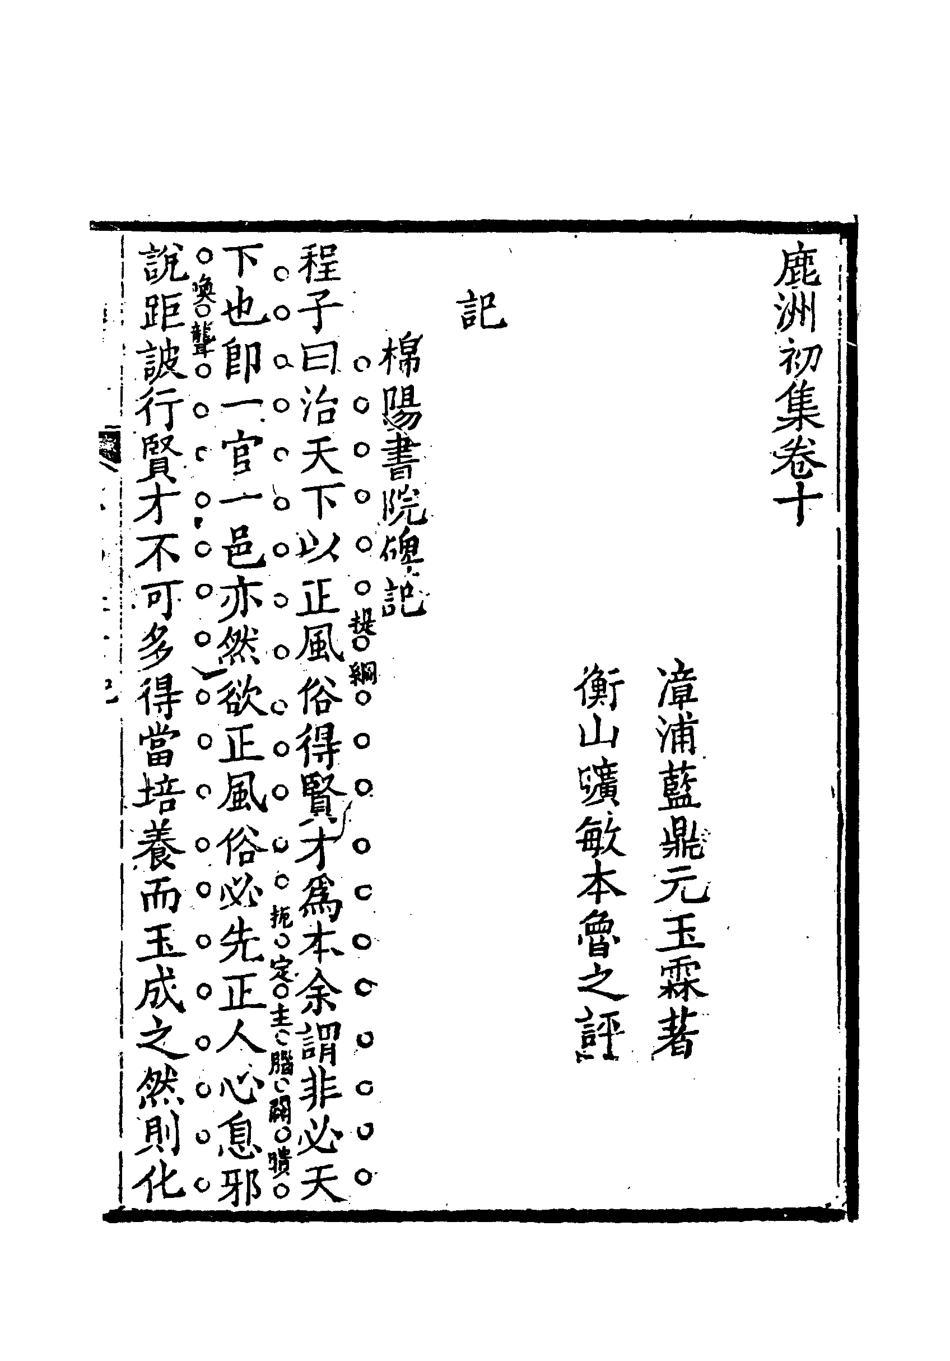 鹿洲初集卷十
漳浦藍鼎元玉霖著
衡山曠敏本魯之評
記
棉陽書院碑記
提綱
程子曰治天下以正風俗得賢才爲本余謂非必天
扼定主腦
下也卽一官一邑亦然欲正風俗必先正人心息邪
喚聾
說距詖行賢才不可多得當培養而玉成之然則化